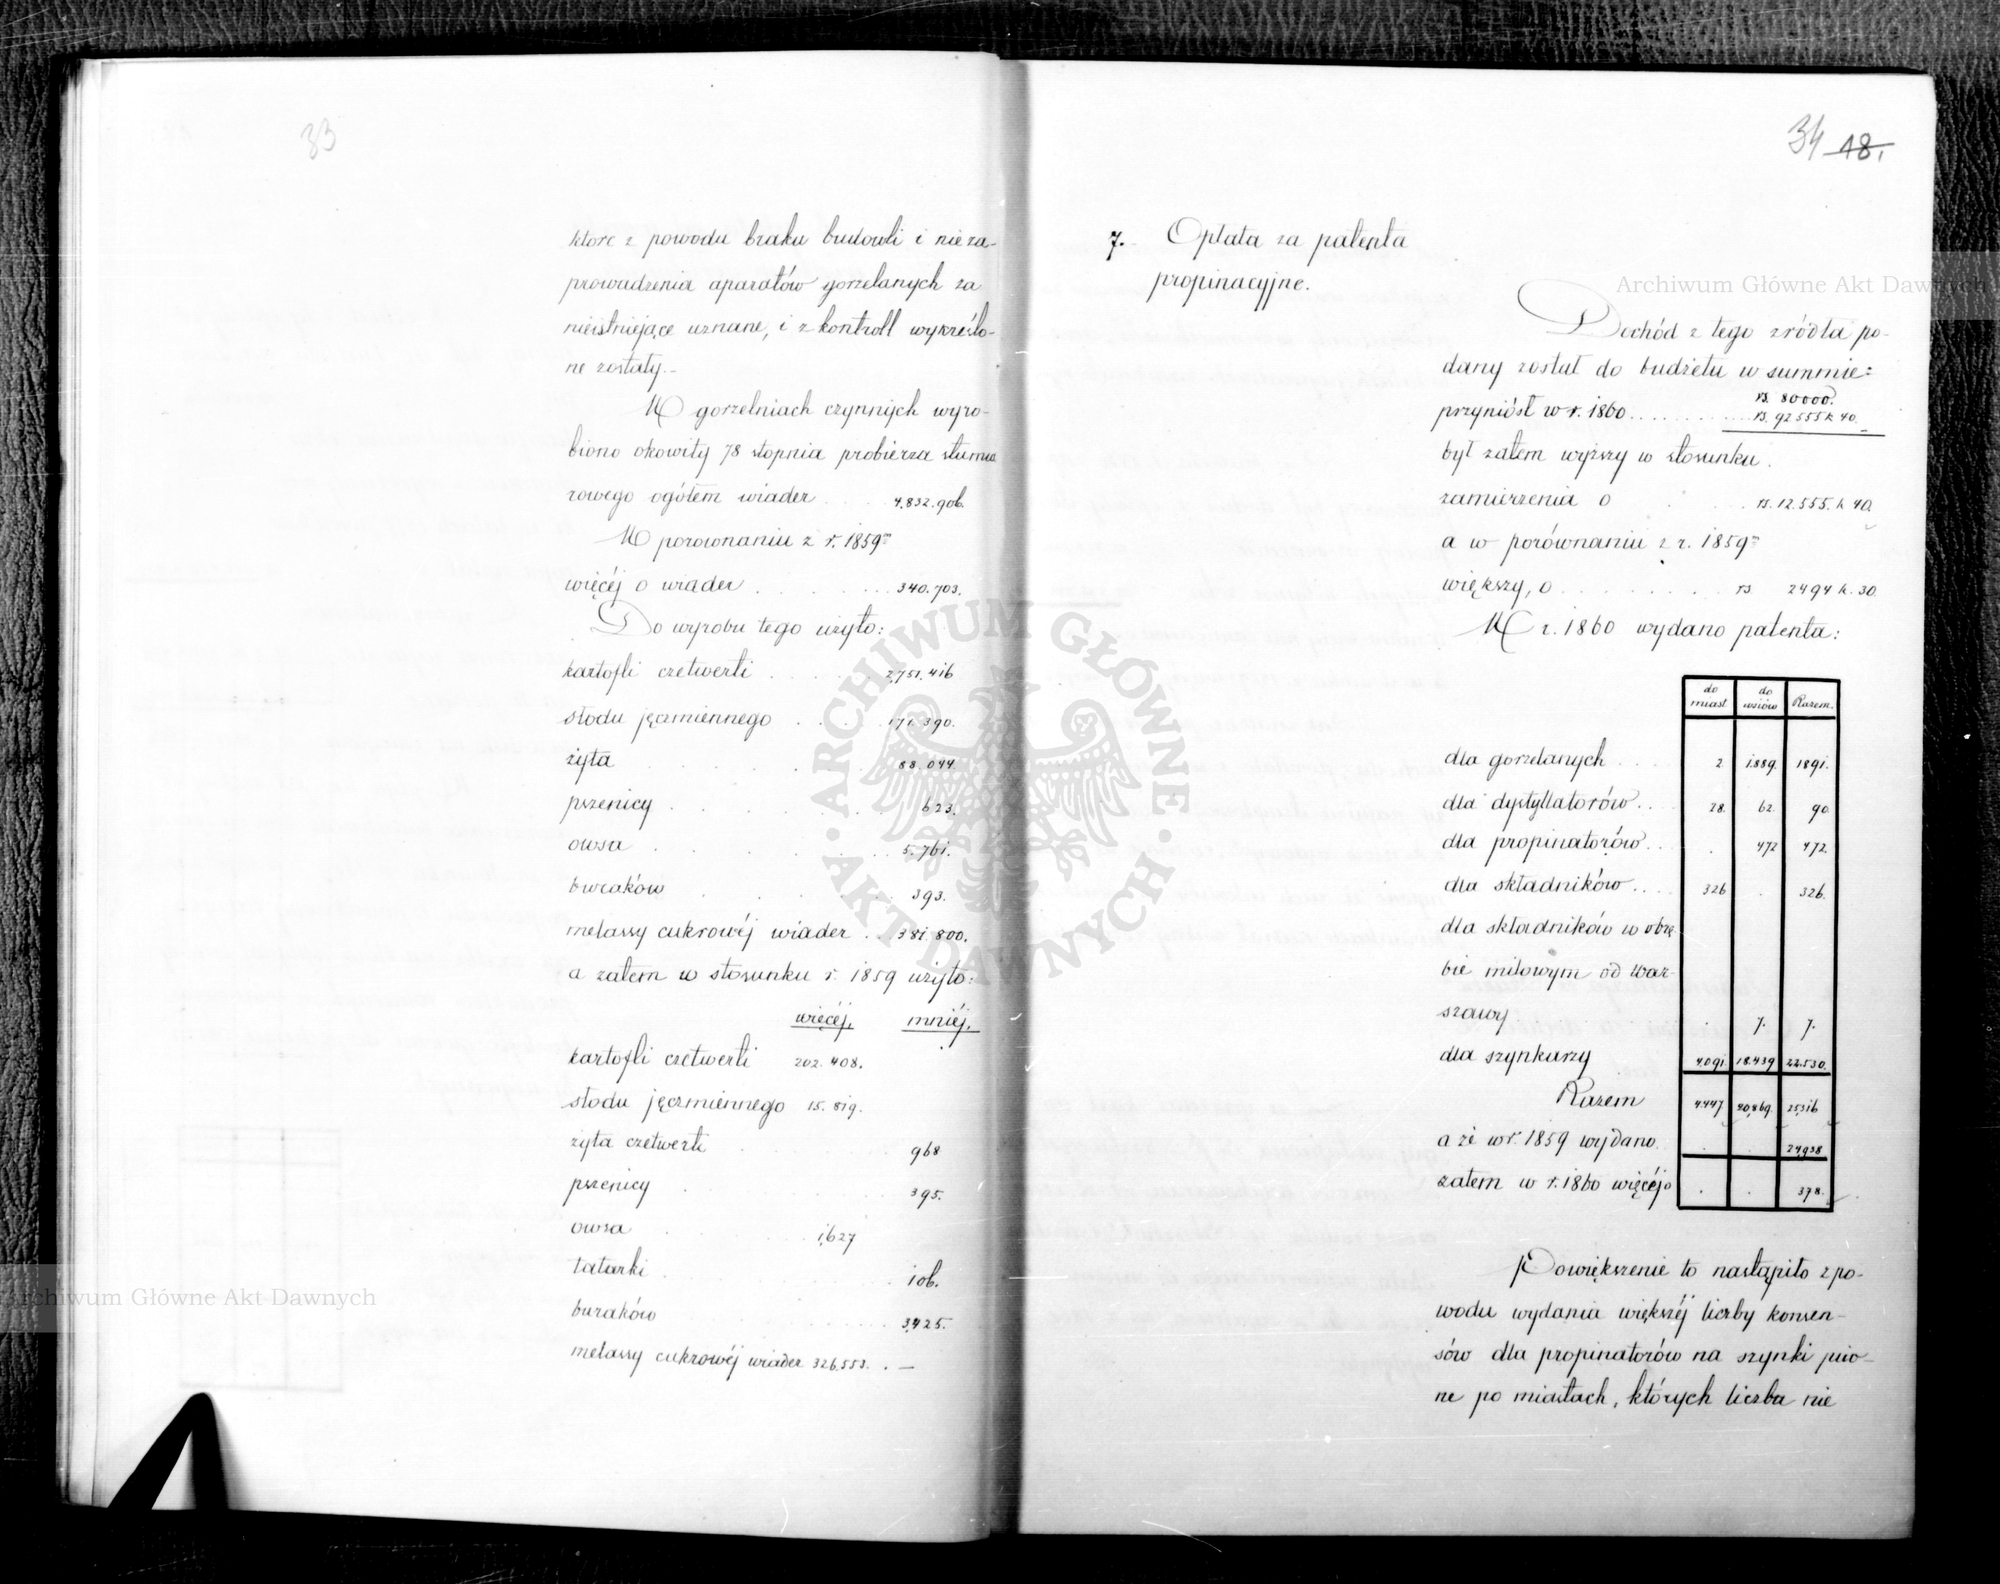 33
które z powodu braku budowli i nieza-
prowadzenia aparatów gorzelanych za
nieistniejące uznane, i z kontroll wykreślo-
ne zostały.-
W gorzelniach czynnych wyro-
biono okowity 78 stopnia probierza stumia
rowego ogółem wiader . . . . 4,832,906.
W porównaniu z r. 1859m
więcéj o wiader . . . . . . 340,703.
Do wyrobu tego użyto:
kartofli czetwerti . . . . . . 2,751,416
słodu jęczmiennego . . . . 171,390.
żyta . . . . . . . 88,044.
pszenicy . . . . . . 623.
owsa . . . . . . . 5,761.
buraków . . . . . 393.
melassy cukrowéj wiader . . . 381,800.
a zatem w stosunku r. 1859 użyto:
więcéj. mniéj.
kartofli czetwerti 202,408. .
słodu jęczmiennego 15,819.
żyta czetwerti . . . . . . 968
pszenicy . . . . . 395.
owsa . . . . 1,627
tatarki . . . . . 106.
buraków . . . . . 3,425.
melassy cukrowéj wiader 326,553. . —
34 18.
7. Opłata za patenta
propinacyjne.
Dochód z tego zródła po-
dany został do budżetu w summie:
rs. 80000.
przyniósł w r. 1860 . . . . . . . . rs. 92555 k 40.
był zatem wyższy w stosunku.
zamierzenia o . . . rs. 12.555. k 40.
a w porównaniu z r. 1859m
większy, o . . . . . . . . rs 2494 k. 30.
W r. 1860 wydano patenta:
do miast do wsiów Razem.
dla gorzelanych . . . . 2 1889. 1891.
dla dystyllatorów. . . 28. 62. 90.
dla propinatorów. . . . 472 472.
dla składników. . . . 326 . 326.
dla składników w obrę
bie milowym od War-
szawy 7. 7.
dla szynkarzy 4091. 18.439 22.530.
Razem 4.447. 20,869. 25,316
a że w r. 1859 wydano. . . 24,938
zatem w r. 1860 więcéj o . . 378.
Powiększenie to nastąpiło z po-
wodu wydania większéj liczby konsen-
sów dla propinatorów na szynki piwo-
ne po miastach, których liczba nie
Archiwum Główne Akt Dawnych
ARCHIWUM GŁÓWNE · AKT DAWNYCH ·
Archiwum Główne Akt Dawnych